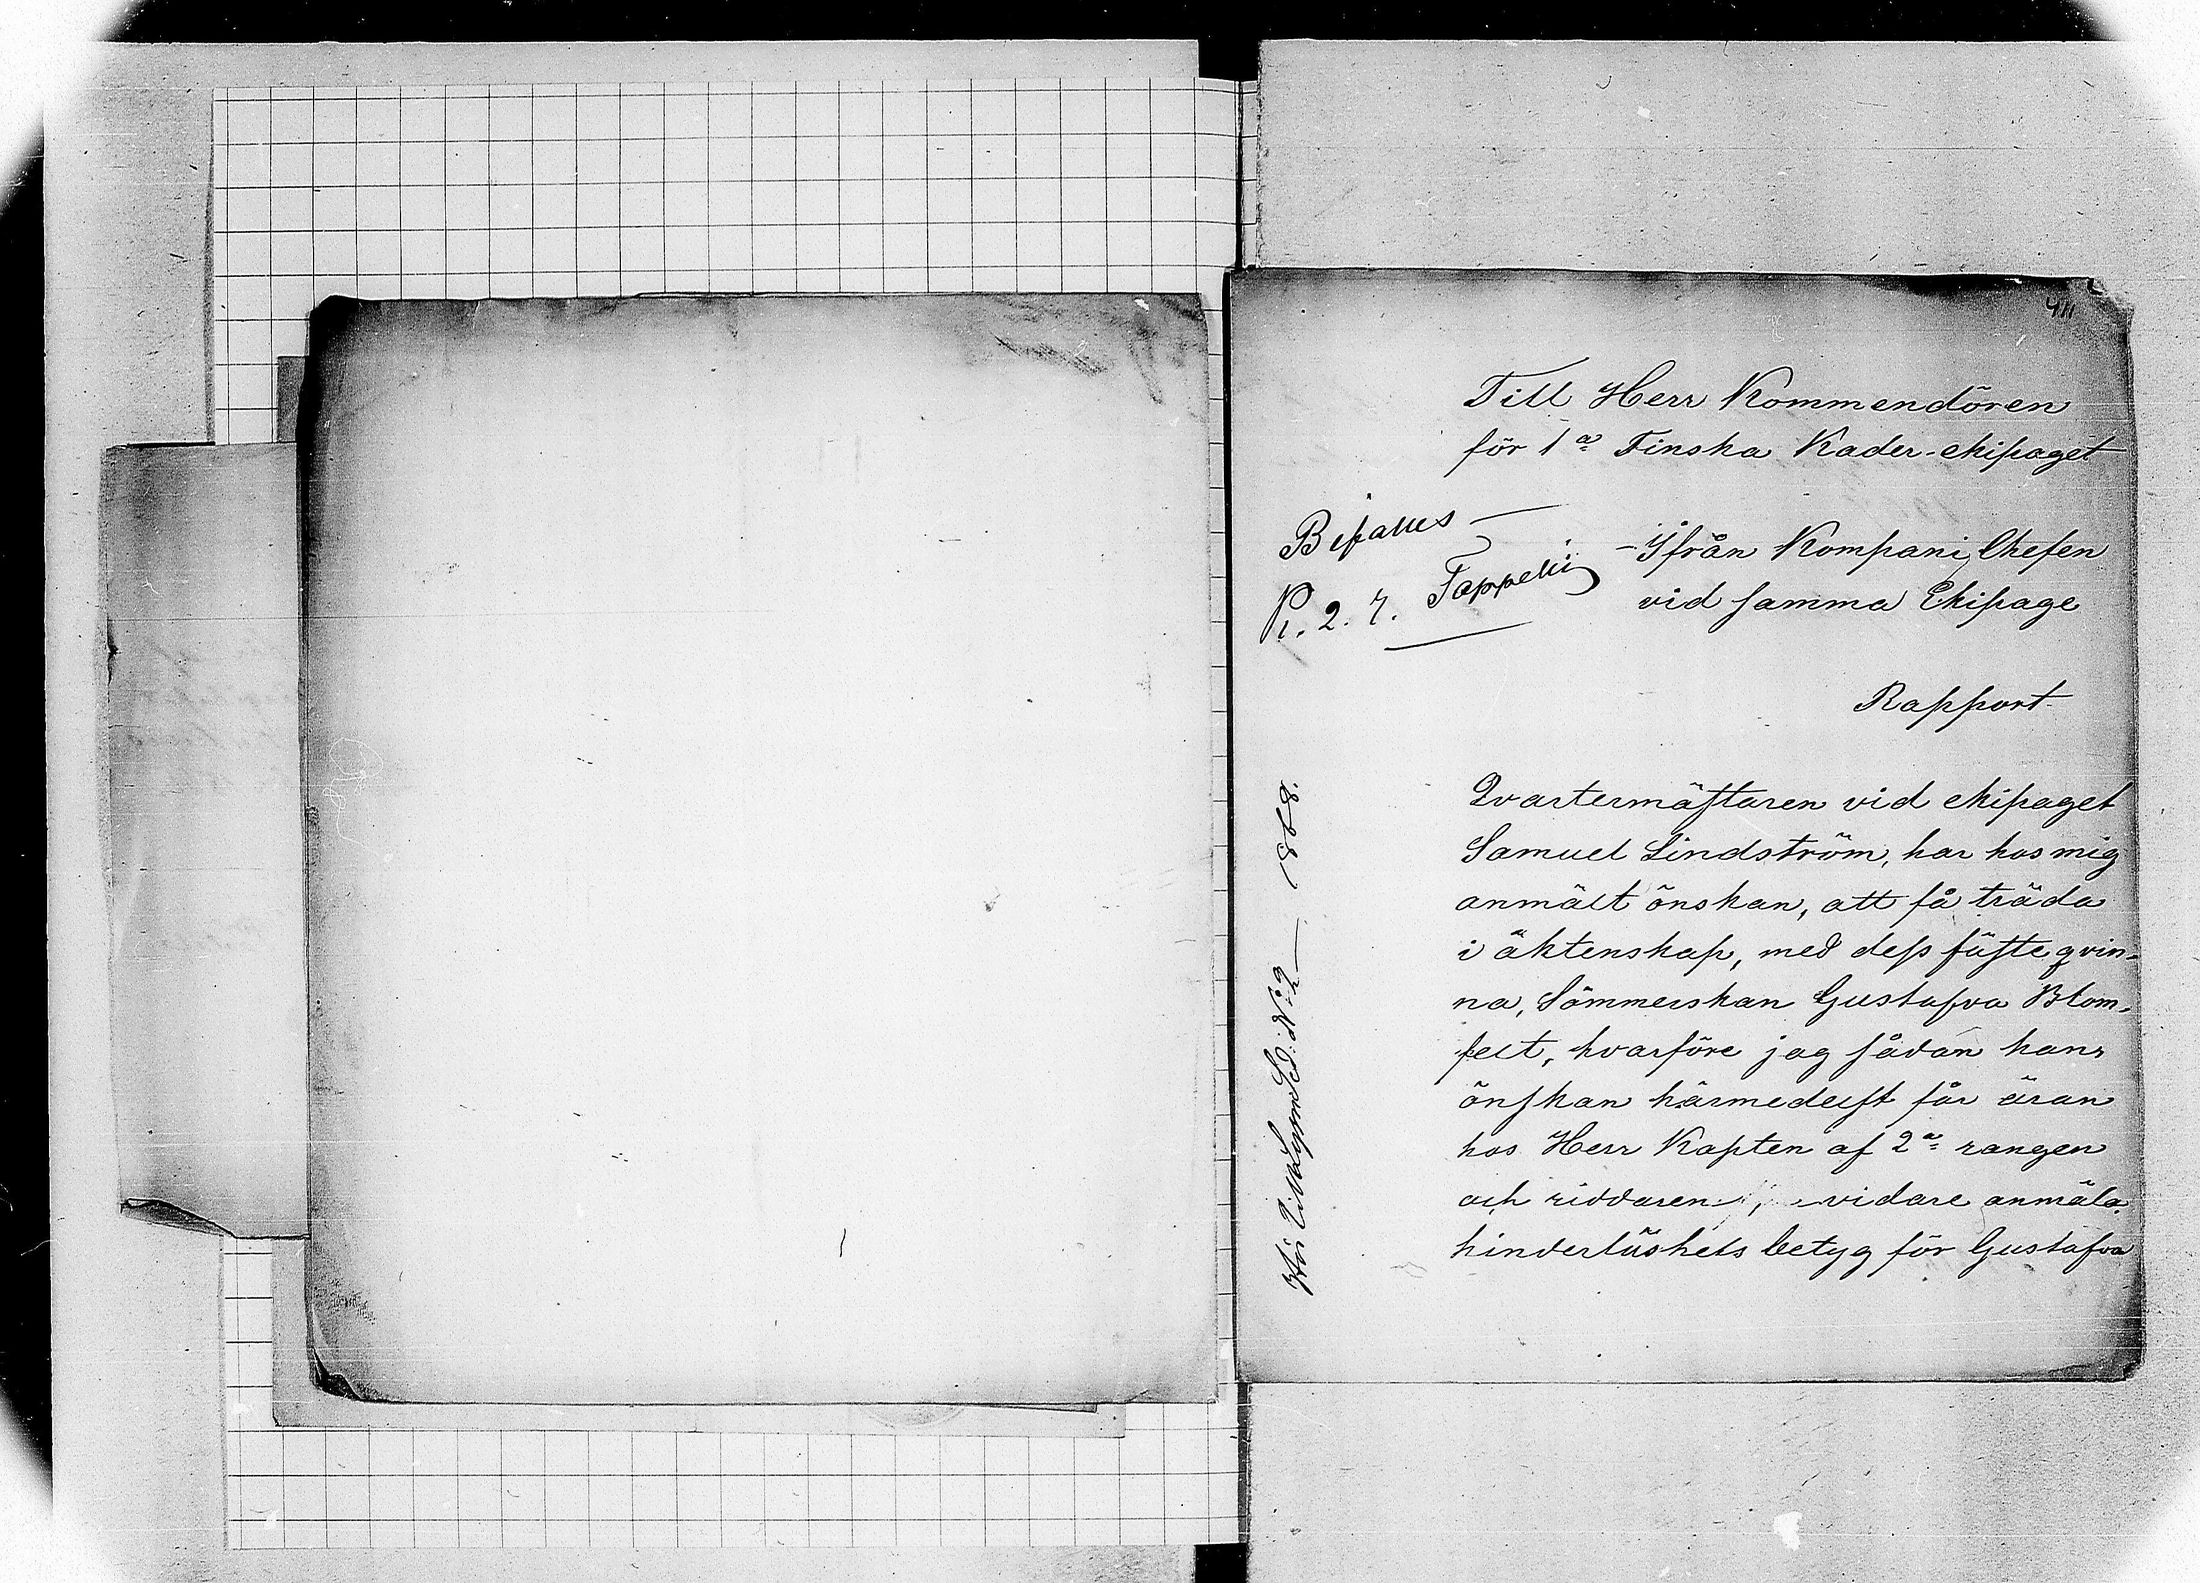 411
Till Herr Kommendören
för 1a Finska Kader-ekipaget
Bifalles
K. 2. r. Tappelin
Ifrån Kompani Chefen
vid samma Ekipage
Rapport
Qvartermästaren vid ekipaget
Samuel Lindström, har hos mig
anmält önskan, att få träda
i äktenskap, med dess fäste qvin-
na, Sömmerskan Gustafva Blom-
felt, hvarföre jag sådan hans
önskan härmedelst får äran
hos Herr Kapten af 2a rangen
och riddaren, vidare anmäla.
hinderlöshets betyg för Gustafva
N:o 2 — 1868.